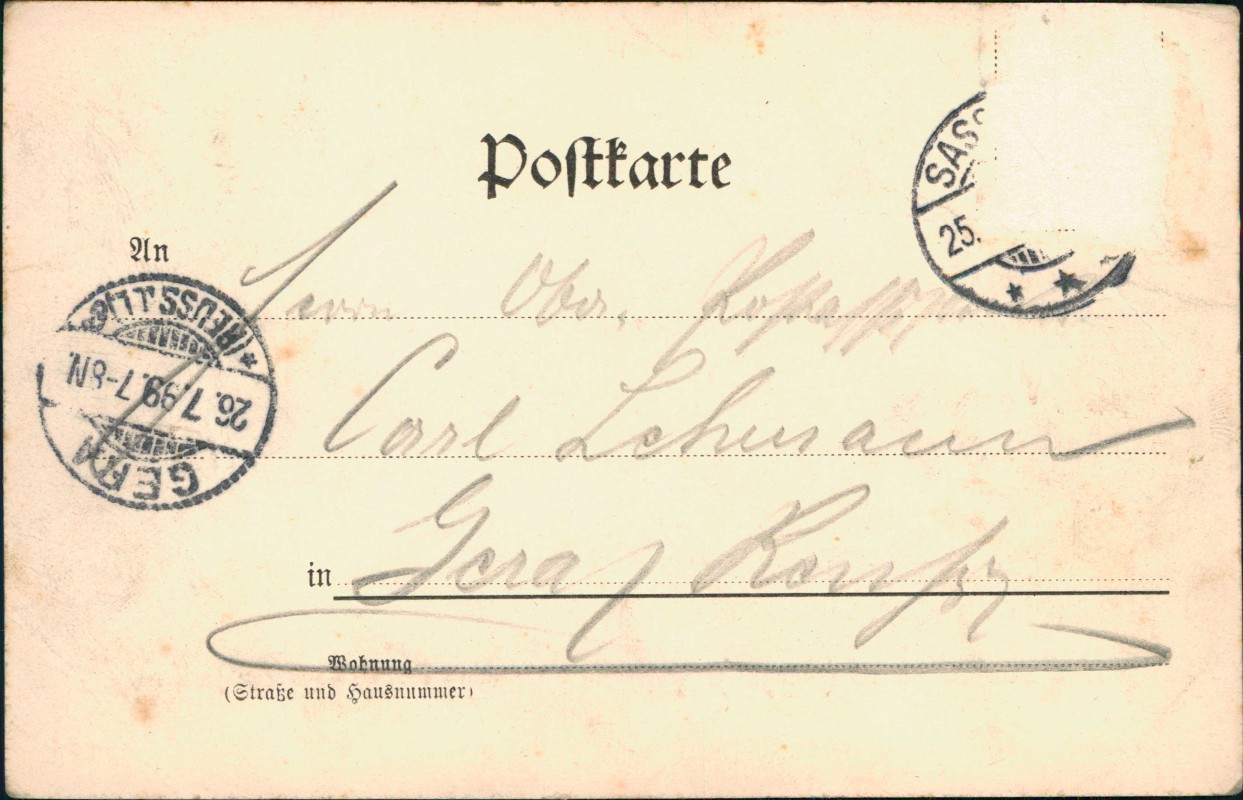 Postkarte
SASS
25.
An
Herrn Ober.
REUSS J.L.
26.7.99.7-8N.
GERA
Carl Lehmann
in Gera / Reuß
Wohnung
(Straße und Hausnummer)